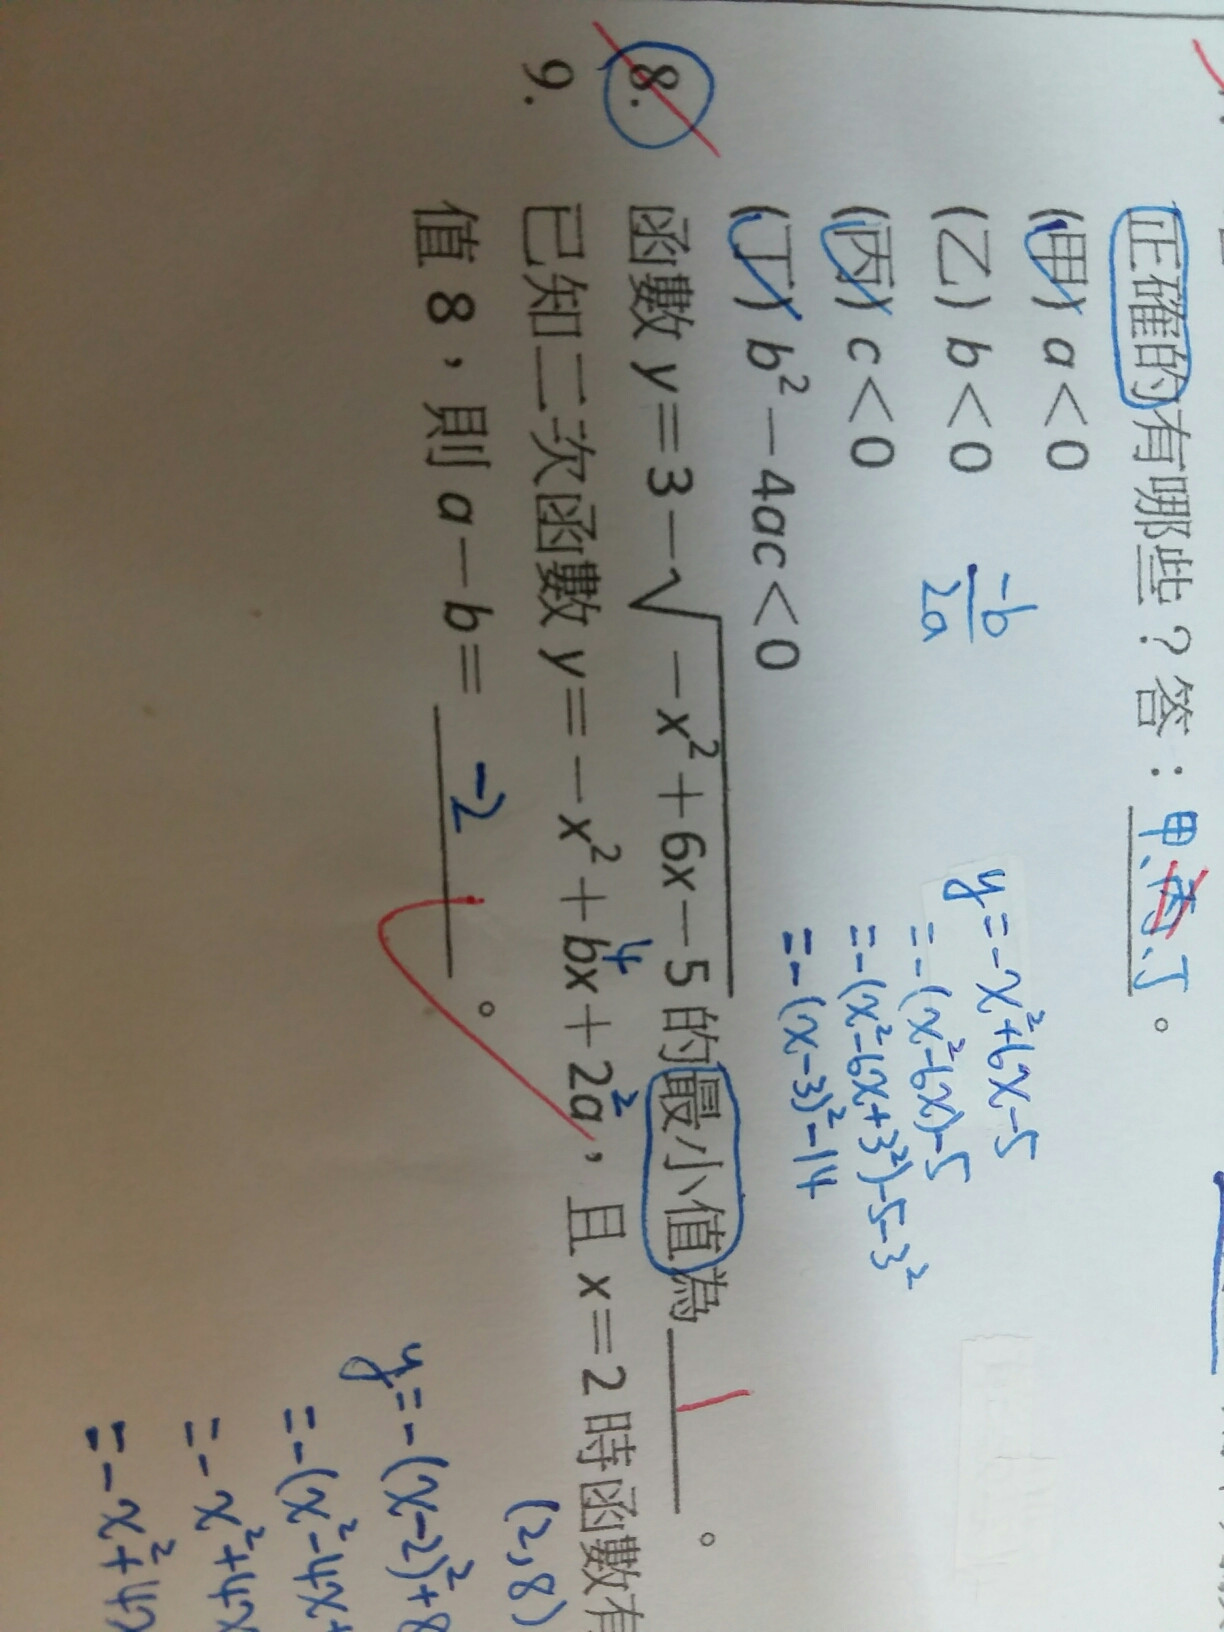 正確的有哪些？答：甲、丙、丁。
(甲) a＜0
(乙) b＜0
-b
2a
(丙) c＜0
(丁) b²－4ac＜0
y=-x²+6x-5
=-(x²-6x)-5
=-(x²-6x+3²)-5-3²
=-(x-3)²-14
8. 函數 y＝3－√－x²＋6x－5 的最小值為 1 。
9. 已知二次函數 y＝－x²＋bx＋2a，且 x＝2 時函數有
4
2
值 8，則 a－b＝ -2 。
(2,8)
y=-(x-2)²+8
=-(x²-4x+
=-x²+4x
=-x²+4x